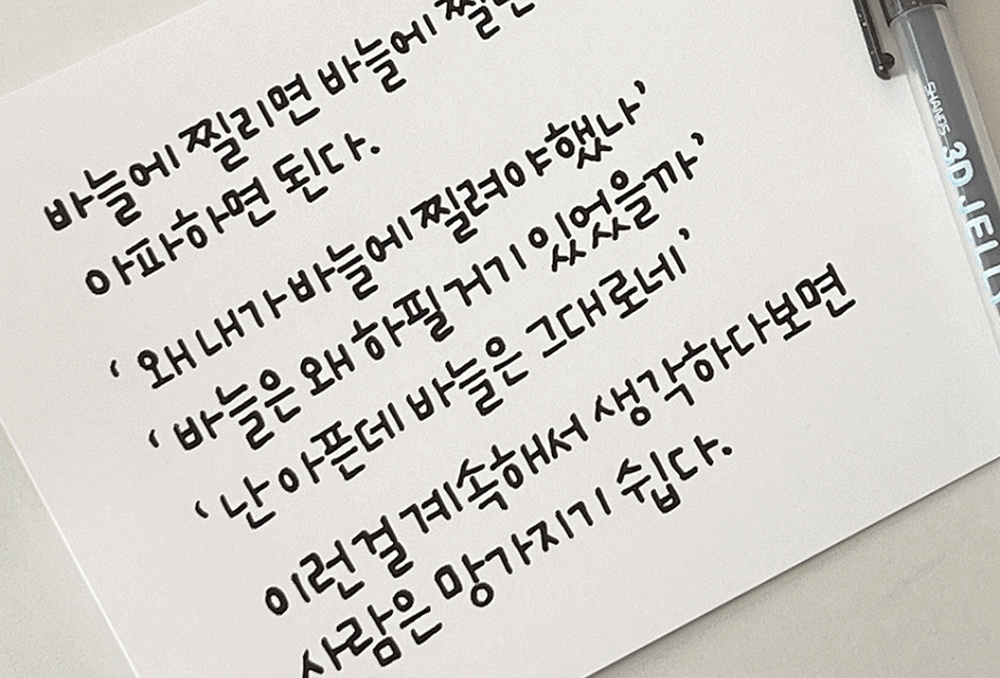 바늘에 찔리면 바늘에 찔린
아파하면 된다.
‘왜 내가 바늘에 찔려야했나’
‘바늘은 왜 하필 거기 있었을까’
‘난 아픈데 바늘은 그대로네’
이런걸 계속해서 생각하다보면
사람은 망가지기 쉽다.
SHANDS
3D JELL